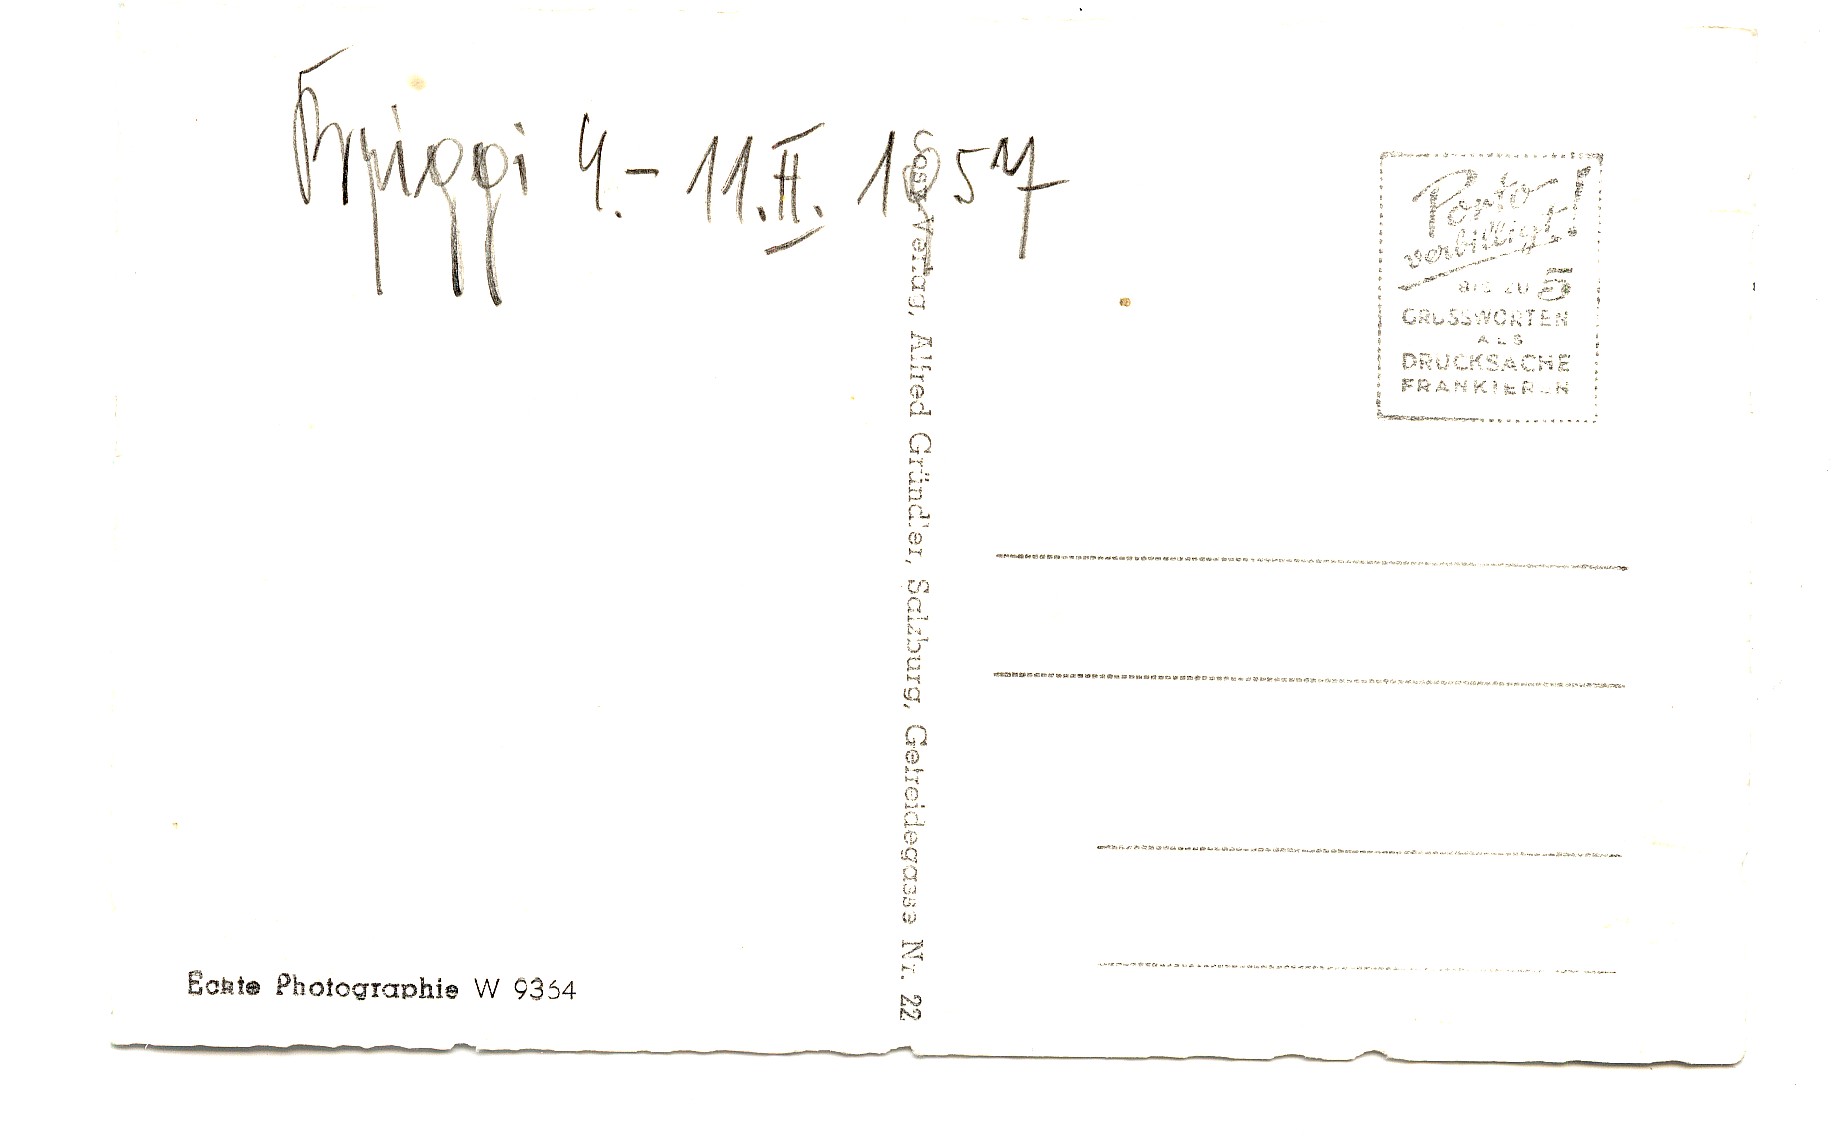 4.- 11.II. 1957
Cosy-Verlag, Alfred Gründler, Salzburg, Getreidegasse Nr. 22
Porto
verbilligt!
BIS ZU 5
GRUSSWORTEN
ALS
DRUCKSACHE
FRANKIEREN
Echte Photographie W 9364